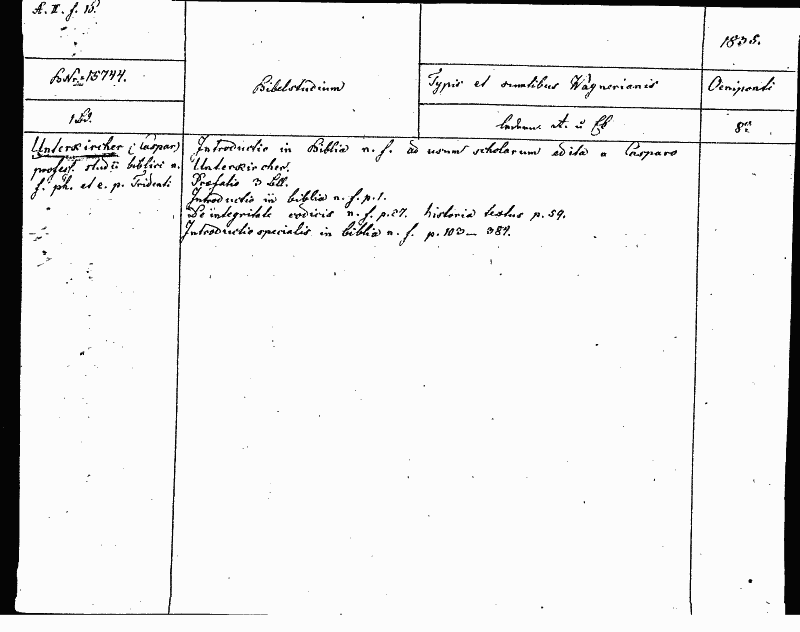 A. II. f. 15.
1835.
B.Nr. 15744.
Bibelstudium
Typis et sumtibus Wagnerianis
Oeniponti
1 Bd.
8°
Unterkircher (Caspar)
profess. studii biblici n.
f. ph. et e. p. Tridenti
Introductio in Biblia n. f. ad usum scholarum edita a Casparo
Unterkircher.
Prefatio 3 Bll.
Introductio in biblia n. f. p. 1.
De integritate codicis n. f. p. 27. historia textus p. 59.
Introductio specialis in biblia n. f. p. 103 — 389.